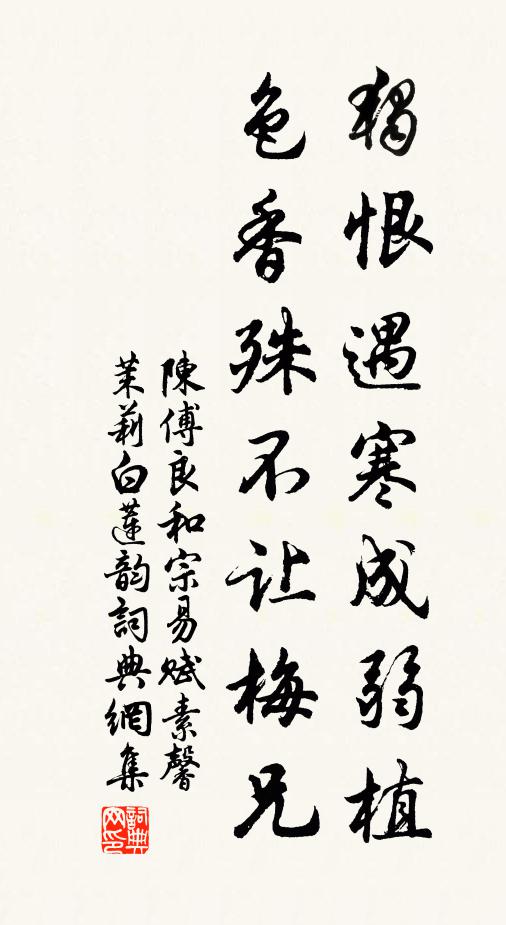 獨恨遇寒成弱植
色香殊不让梅兄
陳傅良和宗易赋素馨
茉莉白蓮韵詞典網集
詞典
网印